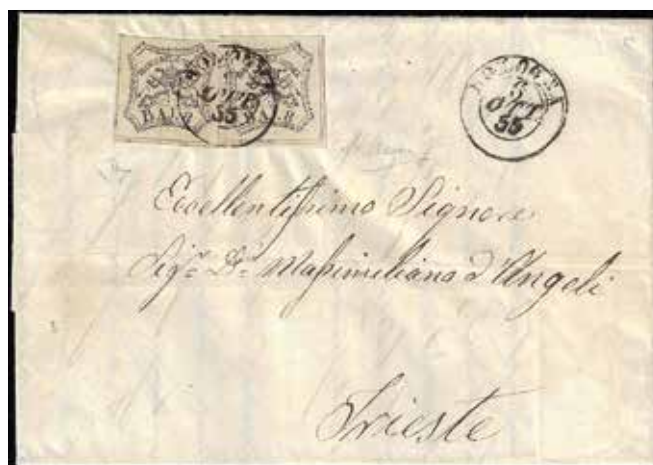 BAJ
BOLOGNA
3
OTT
55
BOLOGNA
3
OTT
55
Eccellentissimo Signore
Sigr. Dr. Massimiliano d'Angeli
Trieste